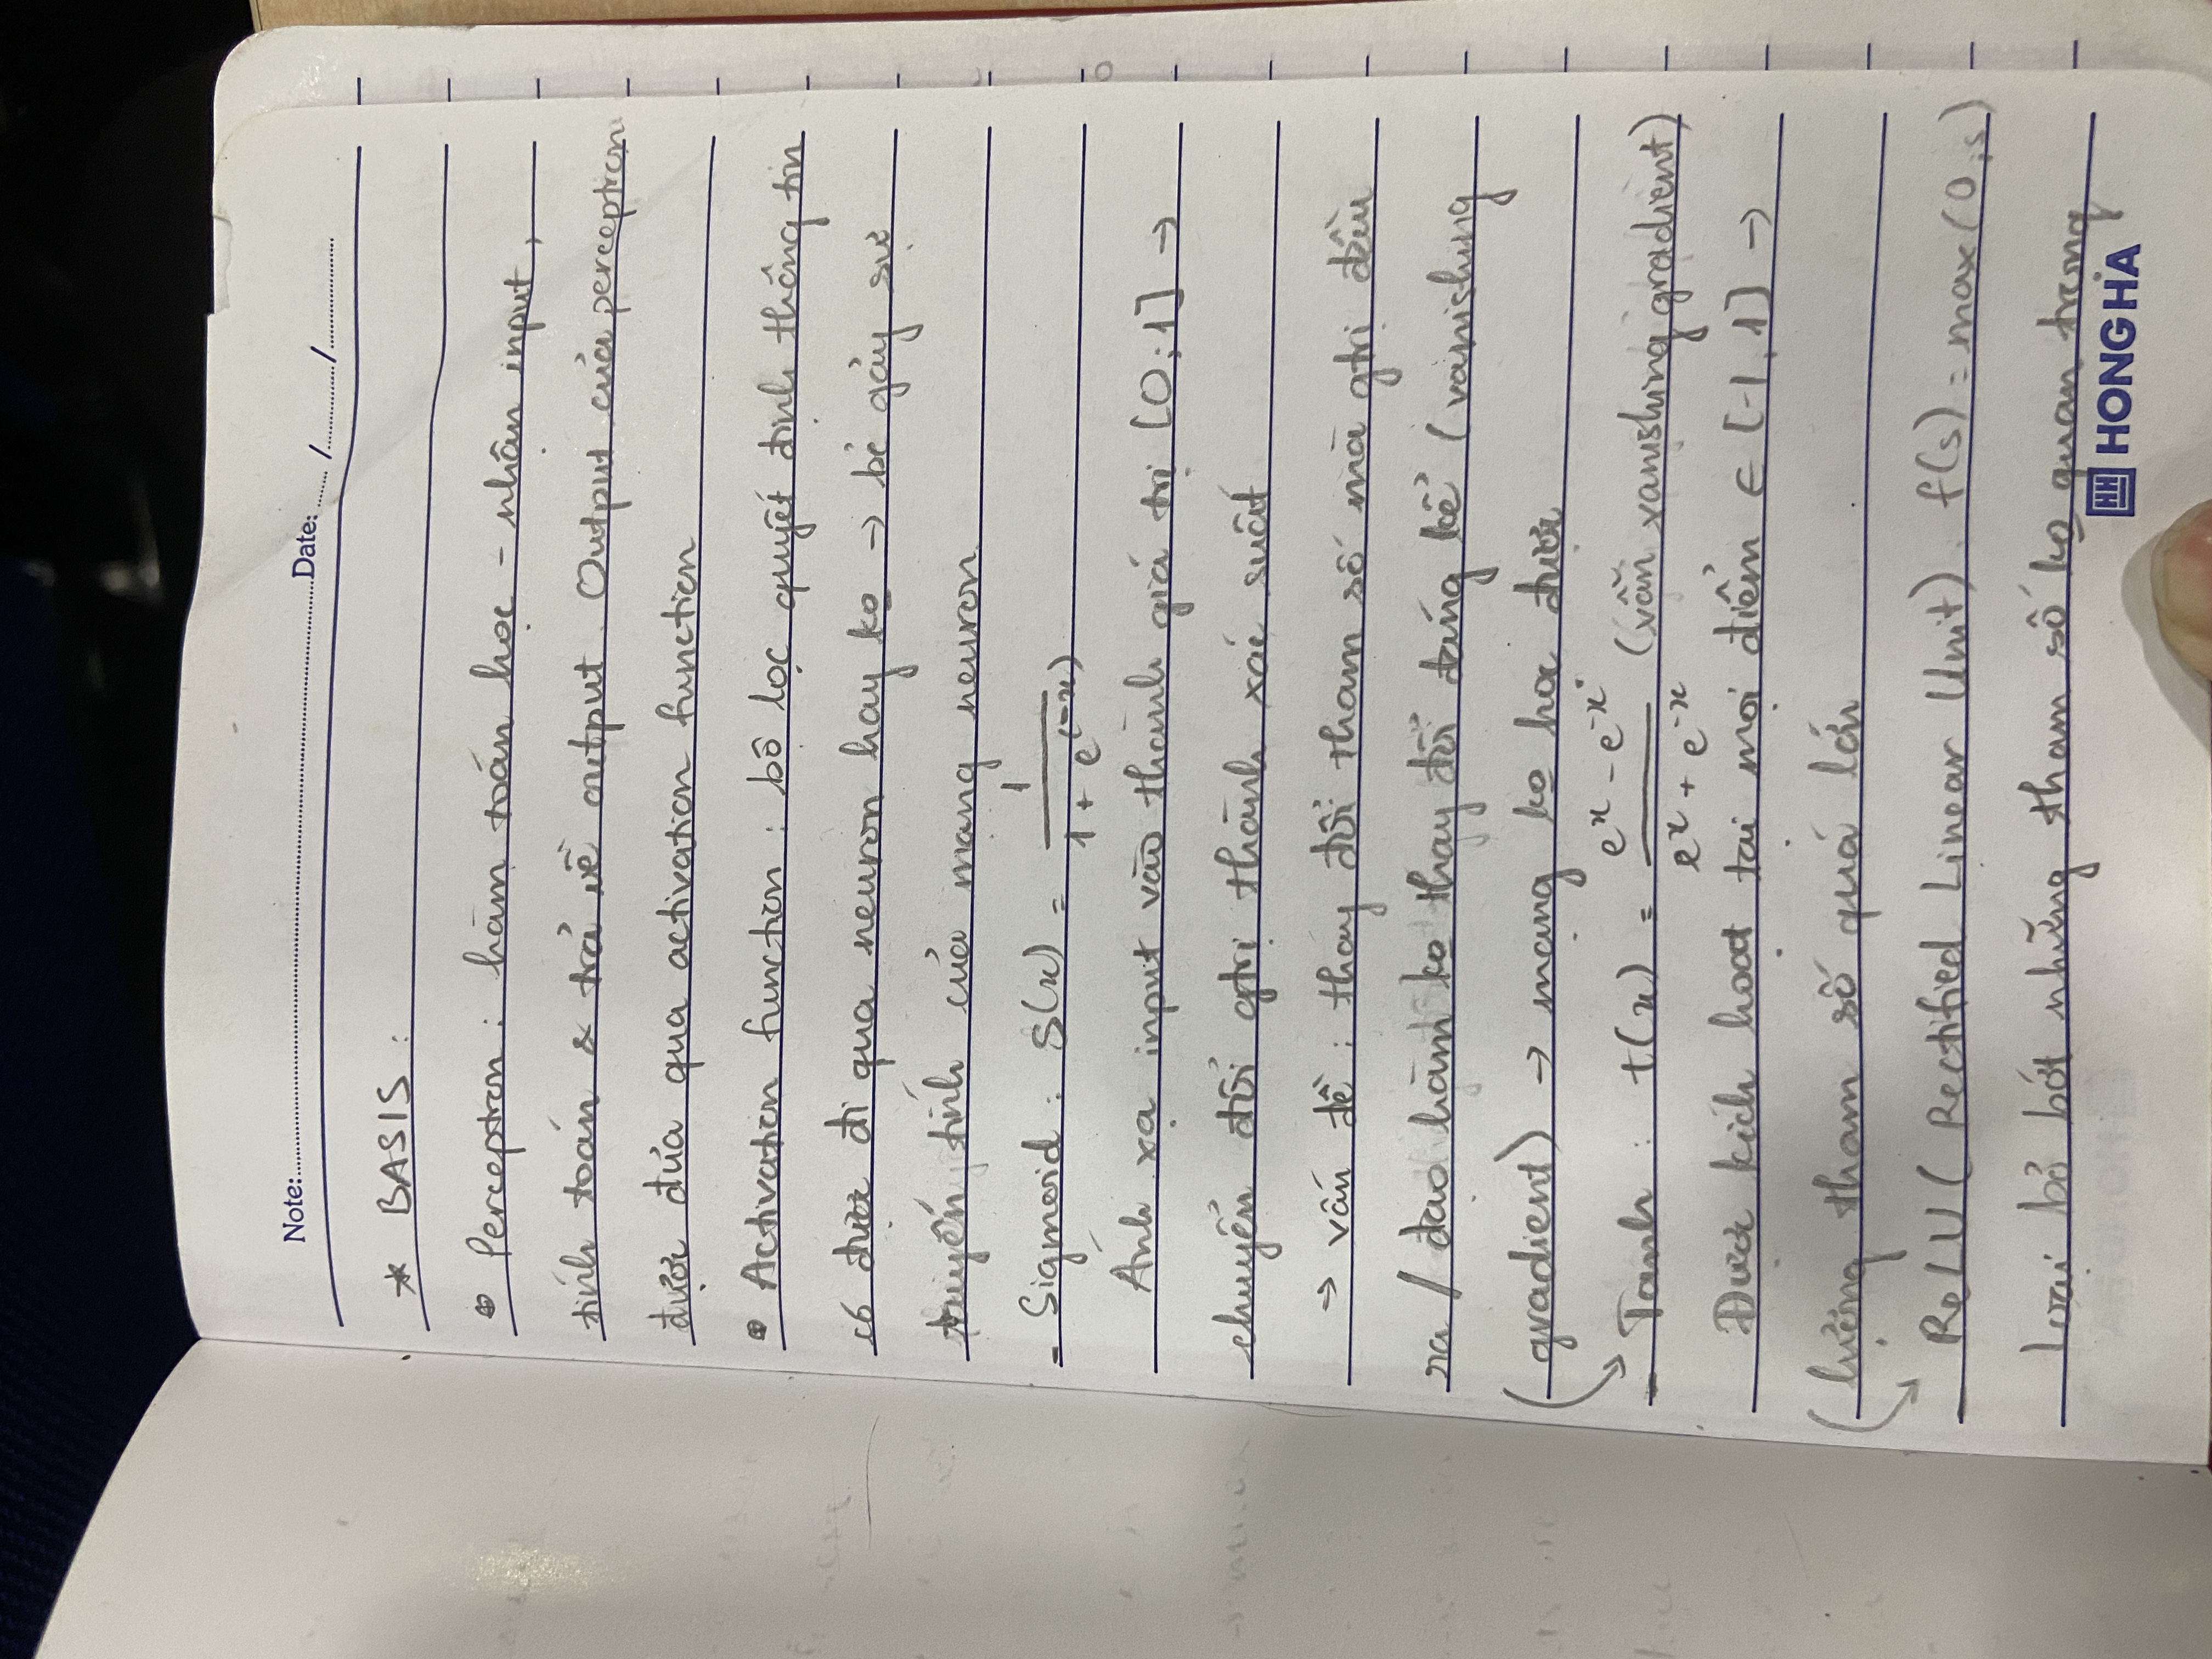 Note: Date: / /
* BASIS :
• Perceptron : hàm toán học - nhận input,
tính toán & trả về output. Output của perceptron
được đưa qua activation function
• Activation function : bộ lọc quyết định thông tin
có được đi qua neuron hay ko → bẻ gãy sự
tuyến tính của mạng neuron.
- Sigmoid : S(x) = 1 / (1 + e^(-x))
Ánh xạ input vào thành giá trị [0;1] →
chuyển đổi gtrị thành xác suất
→ vấn đề : thay đổi tham số mà gtrị đầu
ra / đạo hàm ko thay đổi đáng kể (vanishing
gradient) → mạng ko học được
- Tanh : t(x) = (e^x - e^-x) / (e^x + e^-x) (vẫn vanishing gradient)
Được kích hoạt tại mọi điểm ∈ [-1,1] →
lượng tham số quá lớn
- ReLU (Rectified Linear Unit). f(s) = max(0;s)
Loại bỏ bớt những tham số ko quan trọng
HH HONG HA